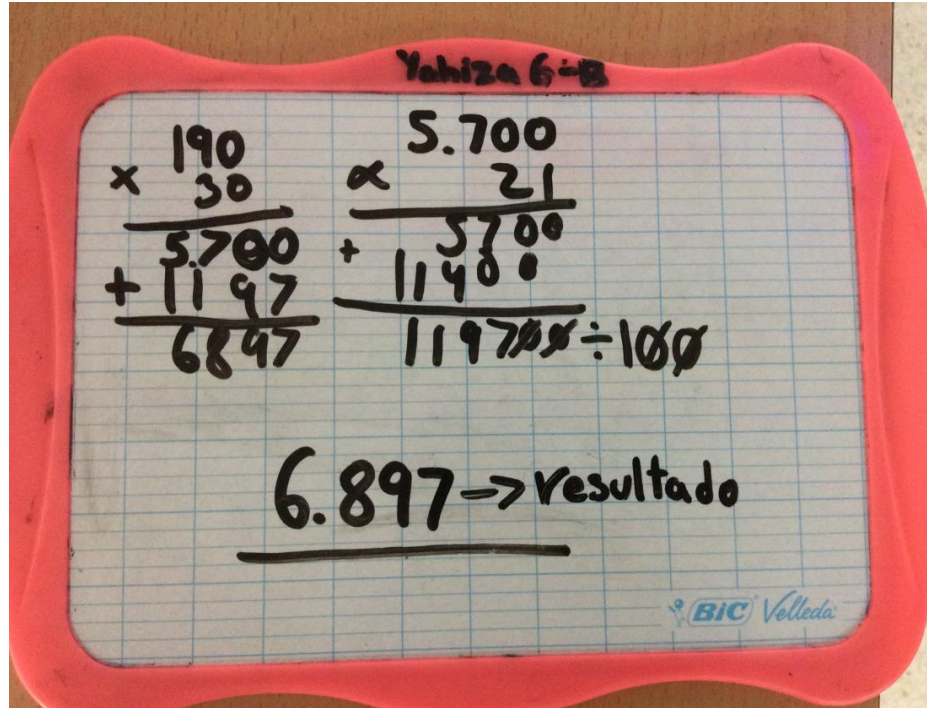 Yahiza 6-B
190
x 30
5.700
+ 1197
6897
5.700
x 21
5700
+ 11400
119700÷100
6.897 -> resultado
BIC Velleda